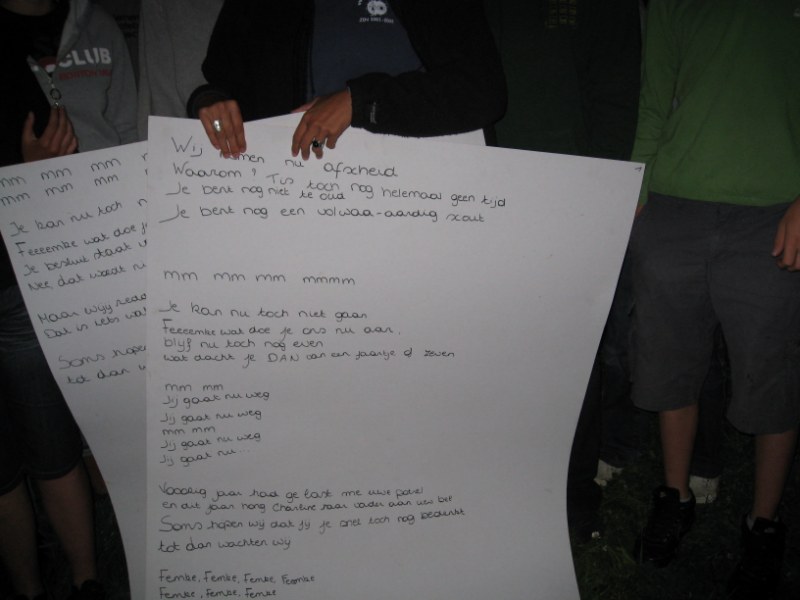 CLUB
mm mm mm
mm mm mm
Je kan nu toch
Feeeemke wat doe
Je besluit staat
Nee, dat wordt
Maar wij
Dat is iets
Soms hopen
tot dan
Wij nemen nu afscheid
Waarom? Tis toch nog helemaal geen tijd
Je bent nog niet te oud
Je bent nog een volwaa-aardig scout
mm mm mm mmmm
Je kan nu toch niet gaan
Feeeemke wat doe je ons nu aan.
blijf nu toch nog even
wat dacht je DAN van een jaartje of zeven
mm mm
Jij gaat nu weg
Jij gaat nu weg
mm mm
Jij gaat nu weg
Jij gaat nu...
Vooorig jaar had ge last me uwe
en dit jaar hong Charlene haar vader aan uw bel
Soms hopen wij dat jij je snel toch nog bedenkt
tot dan wachten wij
Femke, Femke, Femke, Feemke
Femke, Femke, Femke